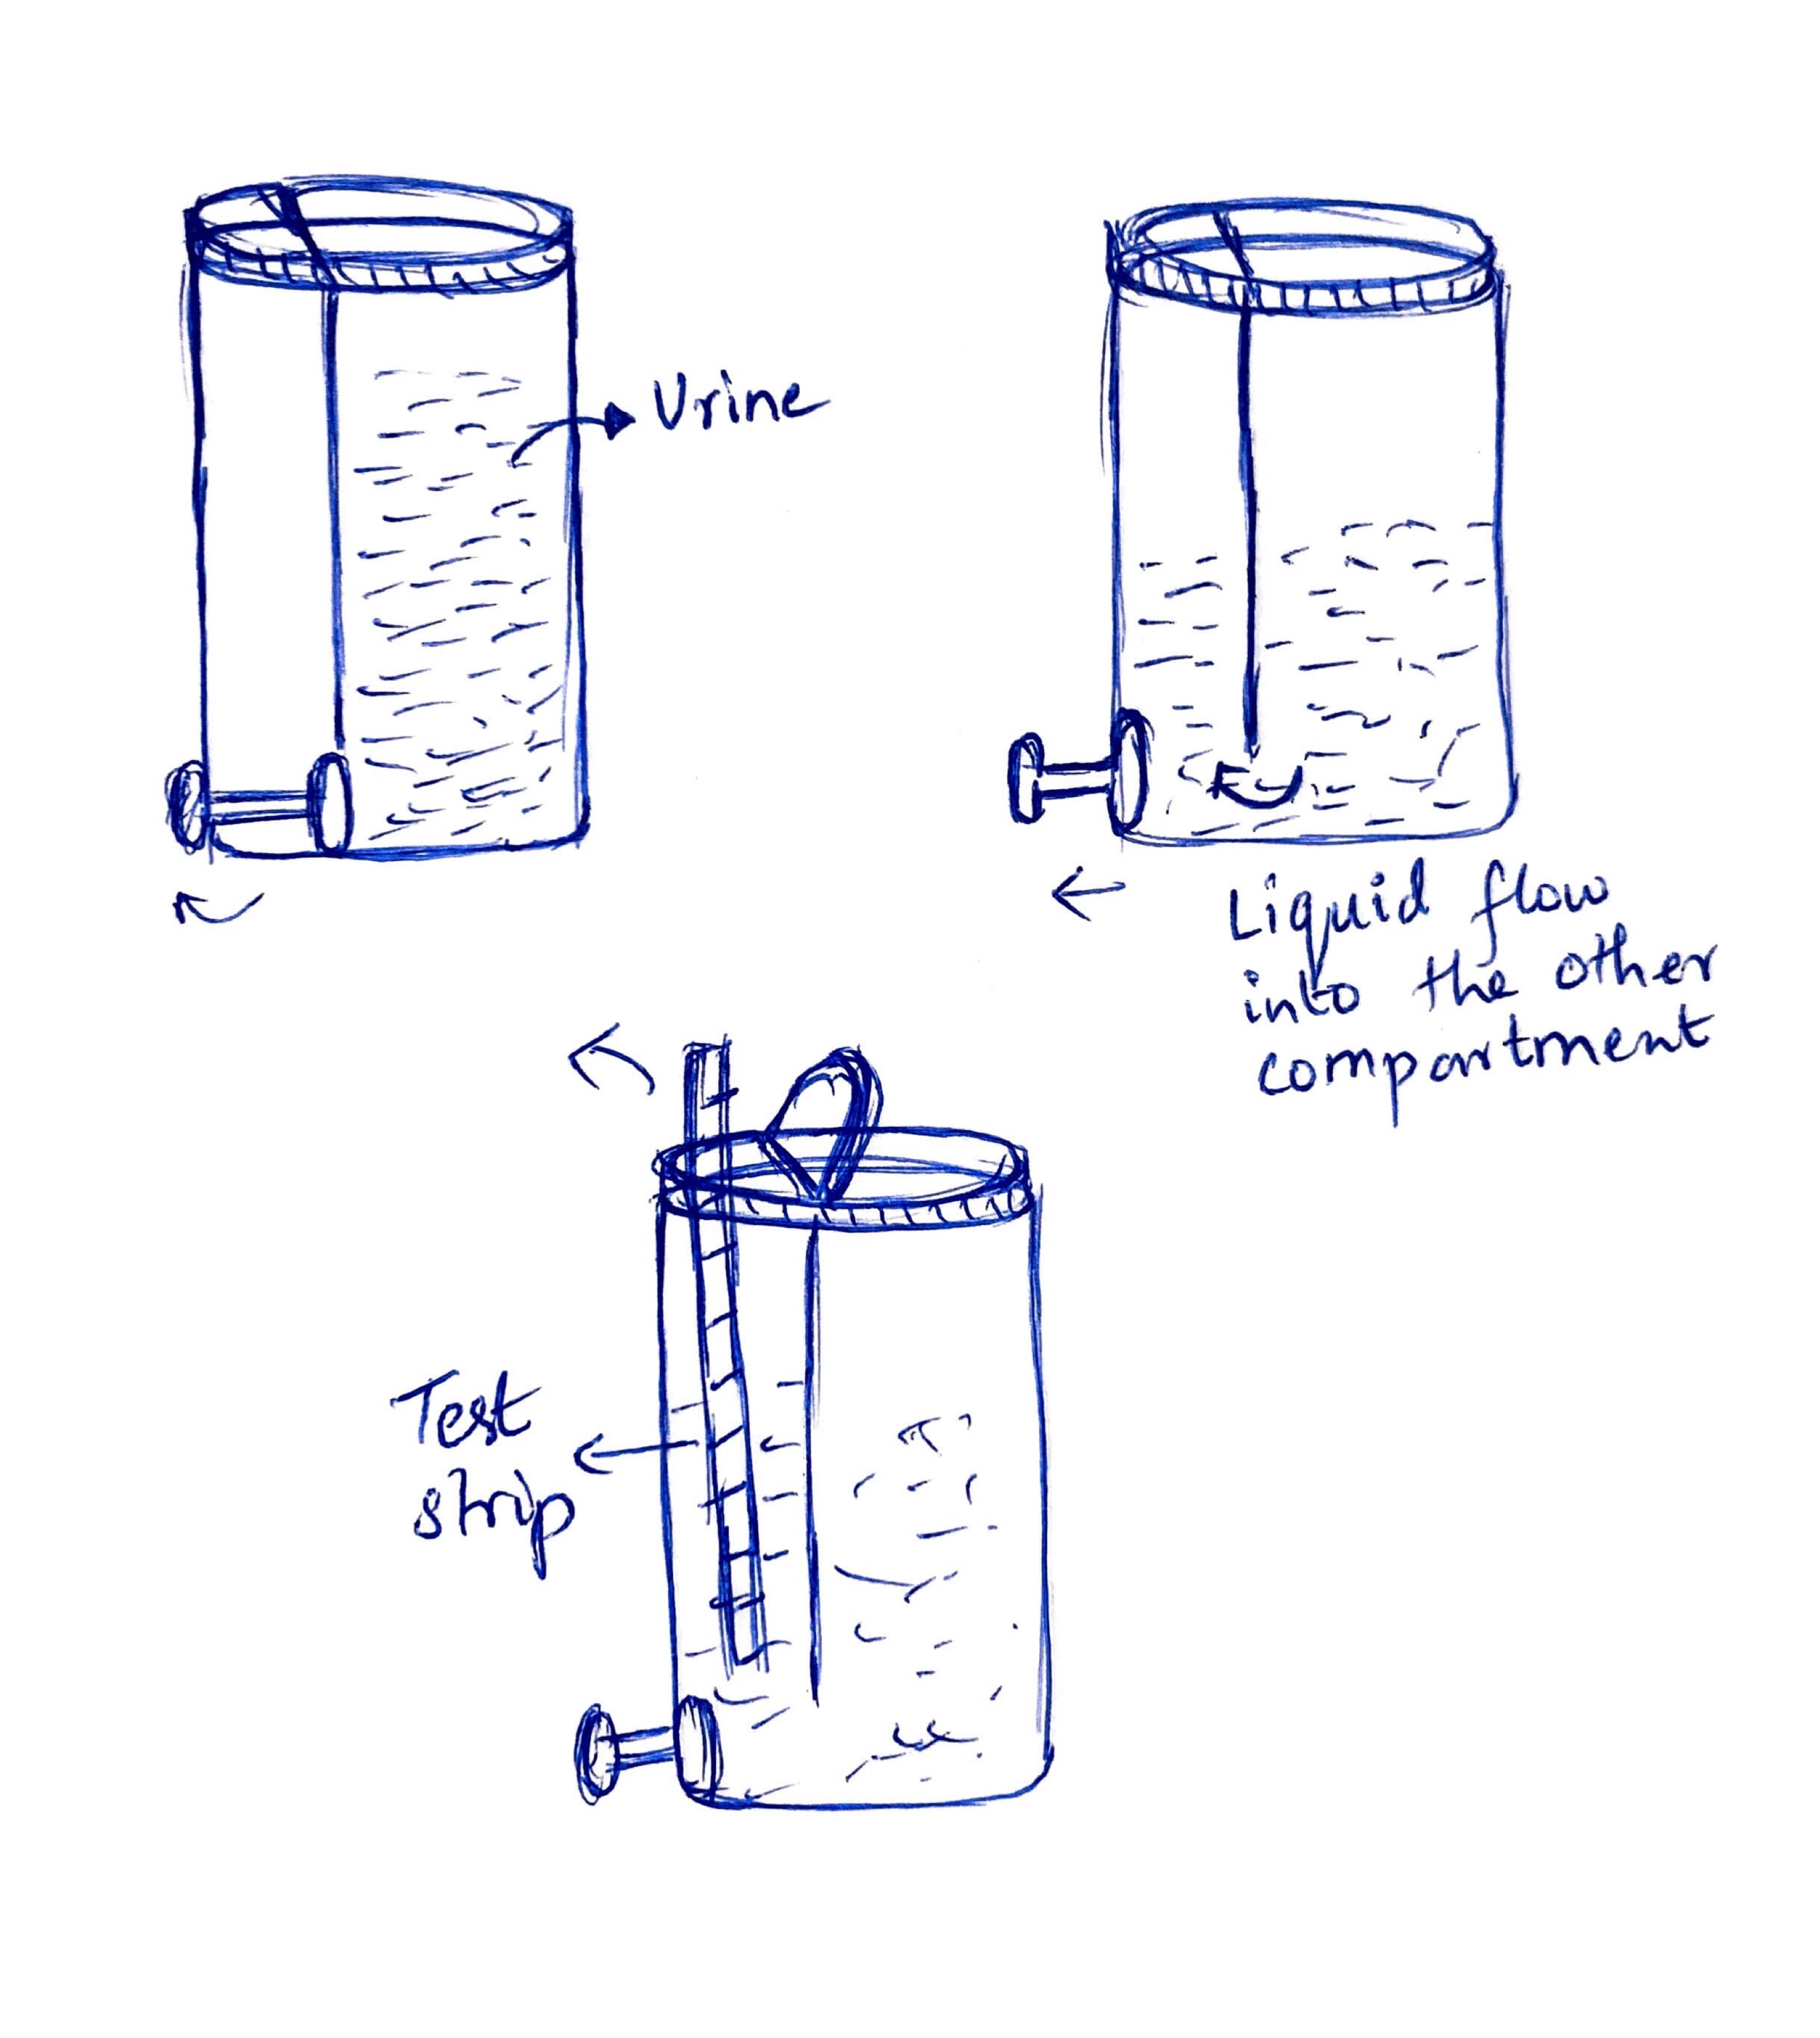 Urine
Liquid flow
into the other
compartment
Test
strip